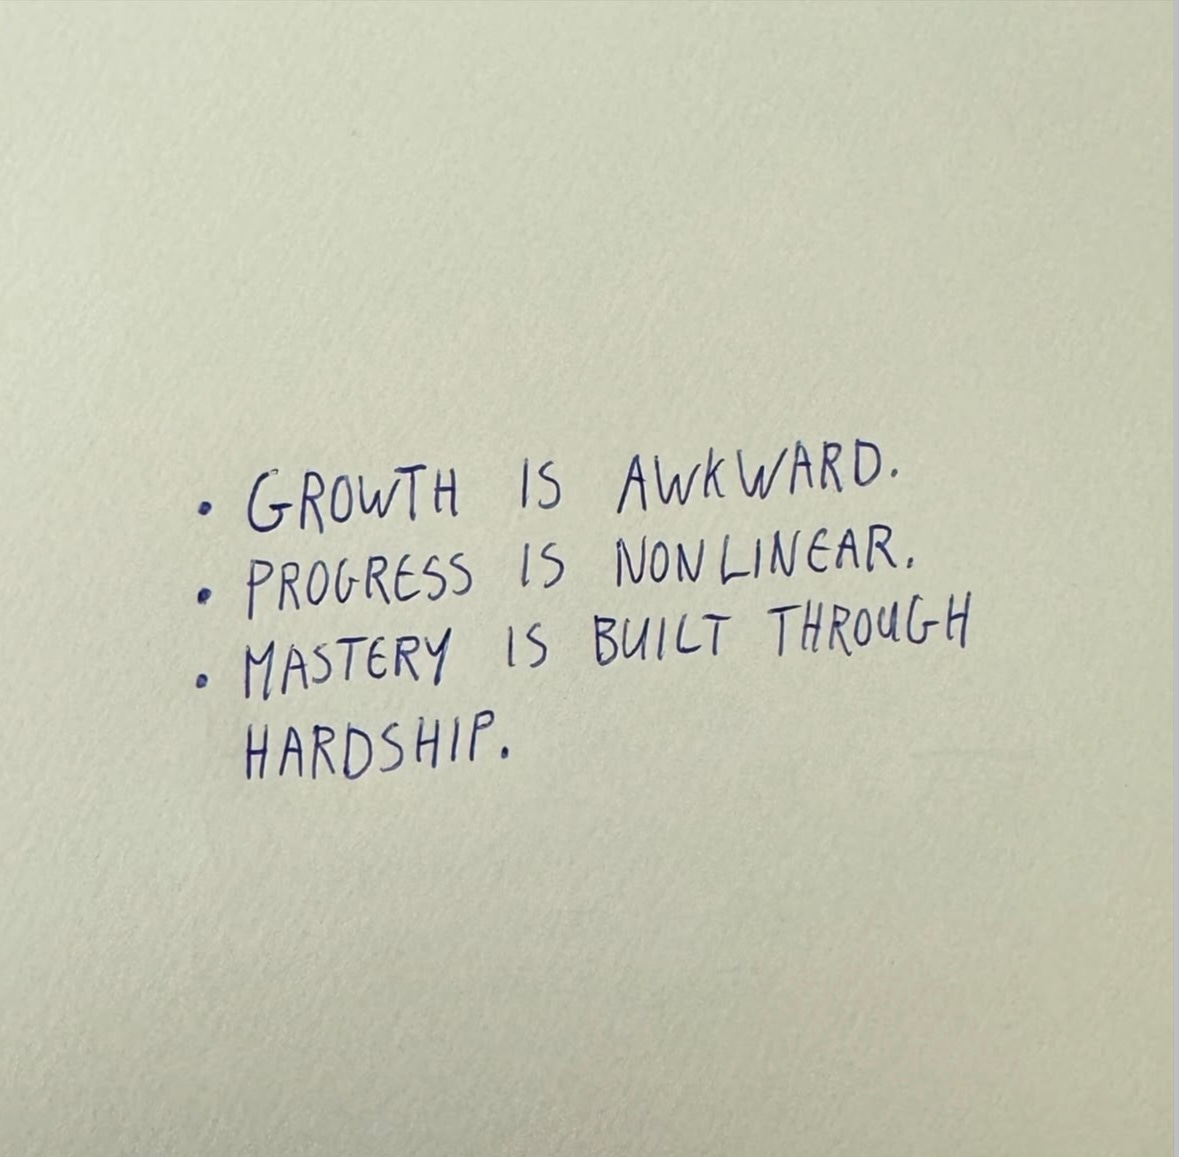 • GROWTH IS AWKWARD.
• PROGRESS IS NONLINEAR.
• MASTERY IS BUILT THROUGH
HARDSHIP.